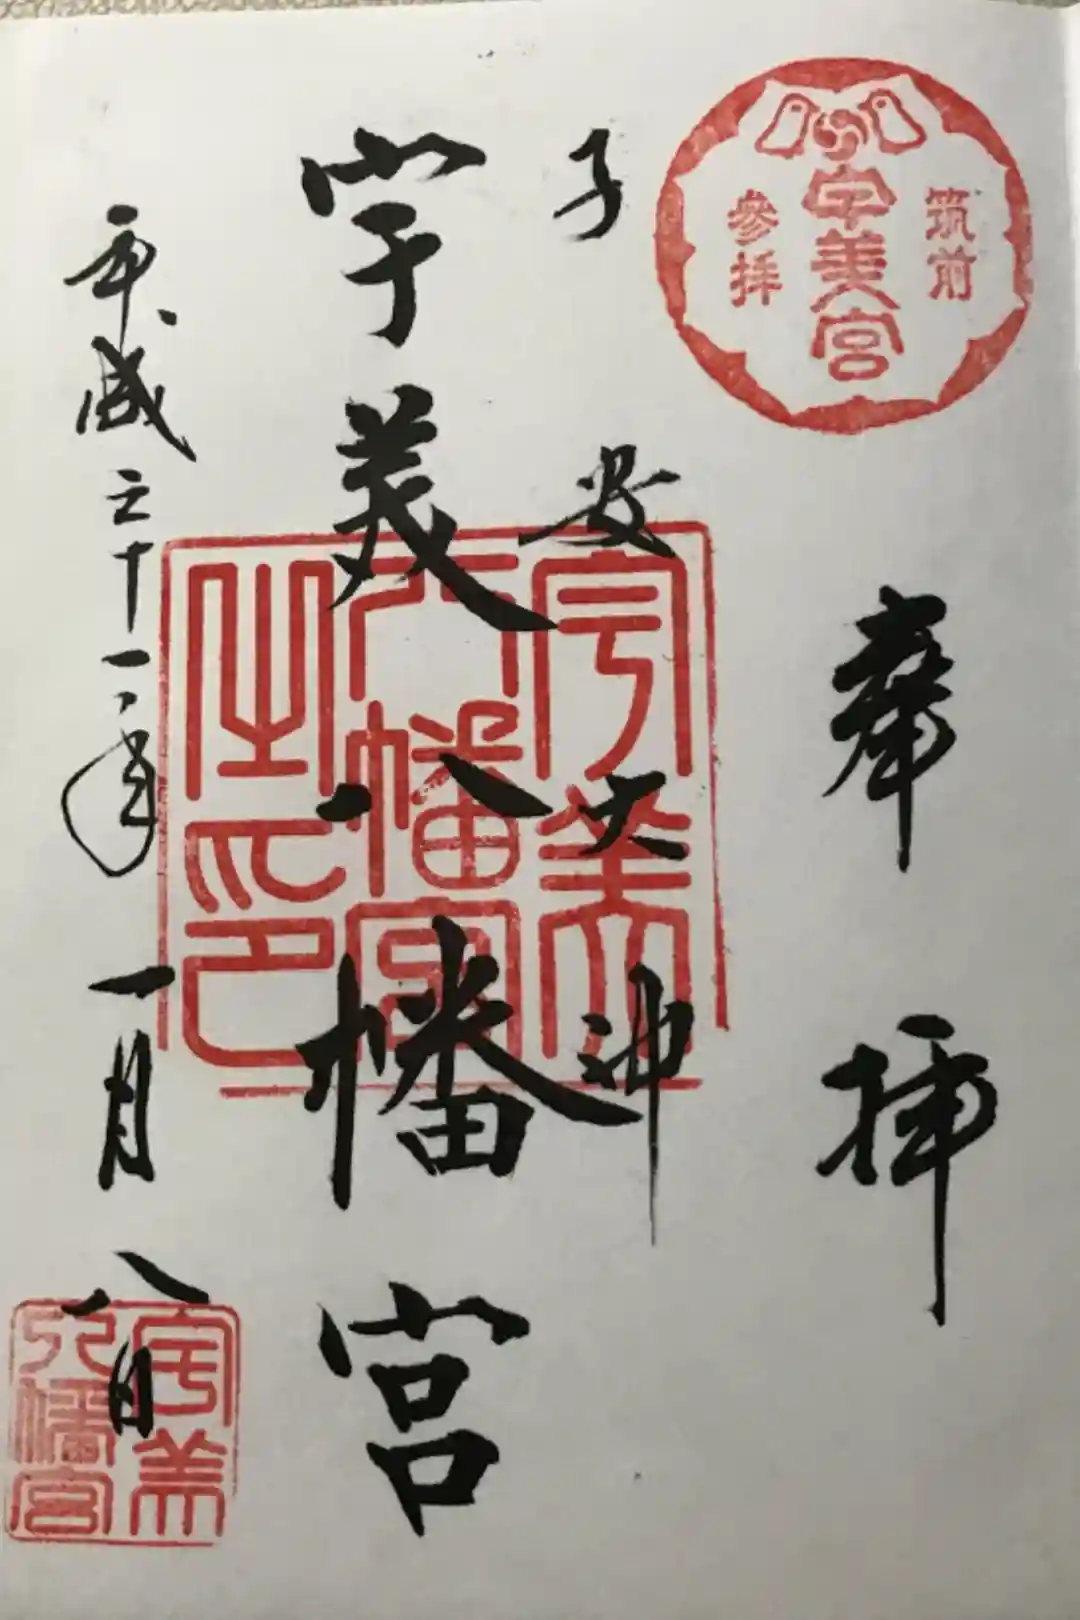 筑前
宇美宮
參拝
奉拝
子安大神
宇美八幡宮
宇美八幡宮之印
平成三十一年一月八日
宇美八幡宮